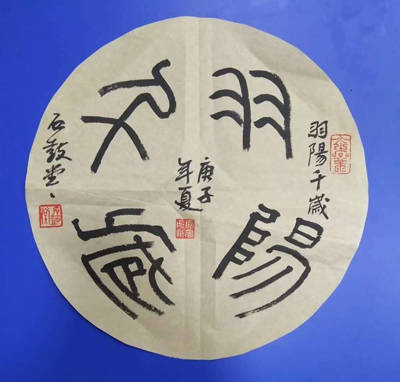 羽陽
千歲
羽陽千歲
庚子
年夏
石鼓堂